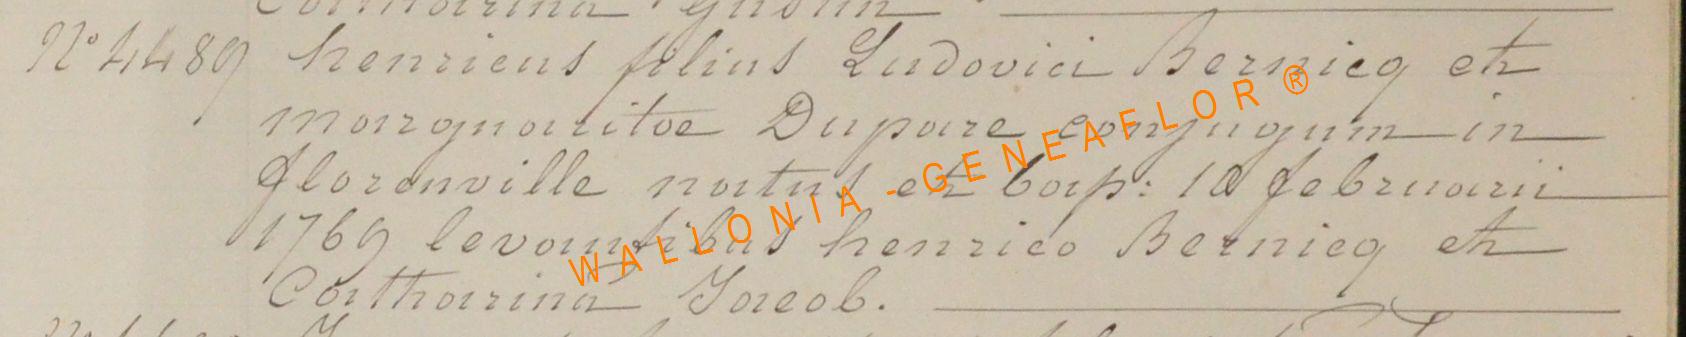 Catharina
N° 4489 henricus filius Ludovici Bernicq et
marguaritae Duparc conjugum in
florenville natus et bap: 10 februarii
1769 levantibus henrico Bernicq et
Catharina Jacob.
WALLONIA - GENEAFLOR ®